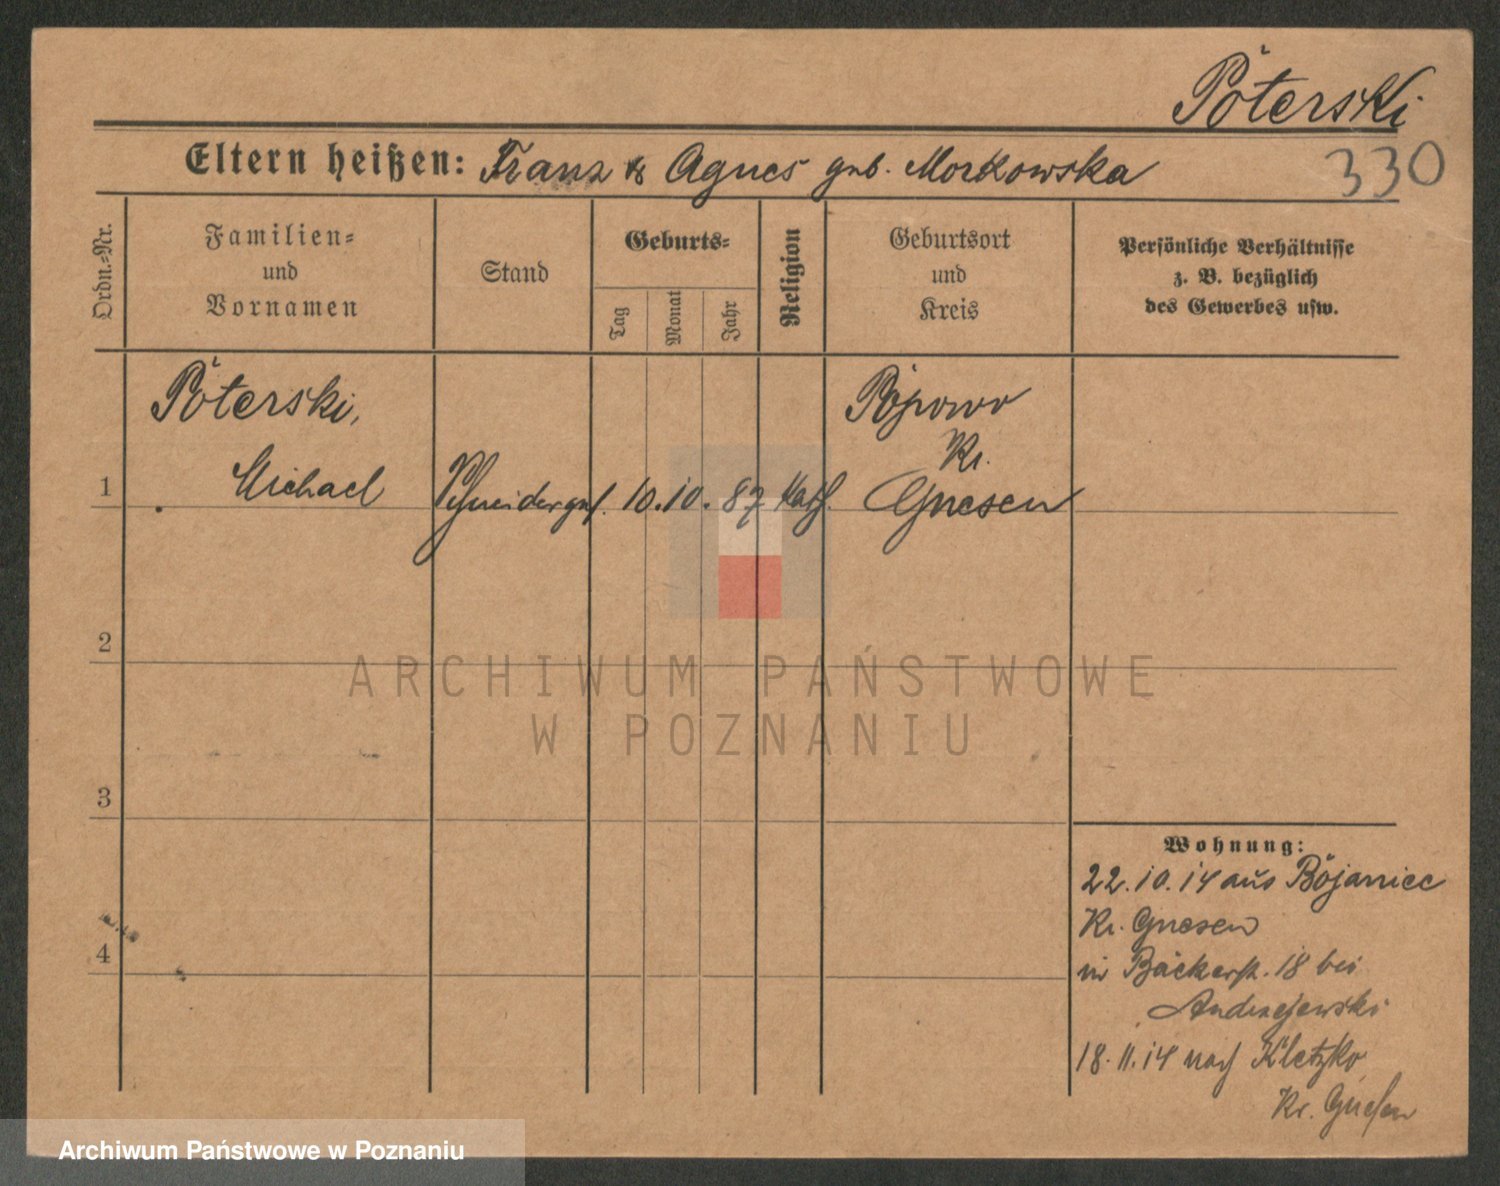 Póterski
Eltern heißen: Franz & Agnes geb. Morkowska
330
Ordn.=Nr.
Familien=
und
Vornamen
Stand
Geburts=
Tag
Monat
Jahr
Religion
Geburtsort
und
Kreis
Persönliche Verhältnisse
z. B. bezüglich
des Gewerbes usw.
Póterski,
Michael
Schneiderges.
10. 10. 87
Kath.
Popowo
Kr.
Gnesen
1
2
3
4
Wohnung:
22.10.14 aus Bojaniec
Kr. Gnesen
in Bäckerstr. 18 bei
Andrzejewski
18.11.14 nach Kletzko
Kr. Gnesen
ARCHIWUM PAŃSTWOWE
W POZNANIU
Archiwum Państwowe w Poznaniu